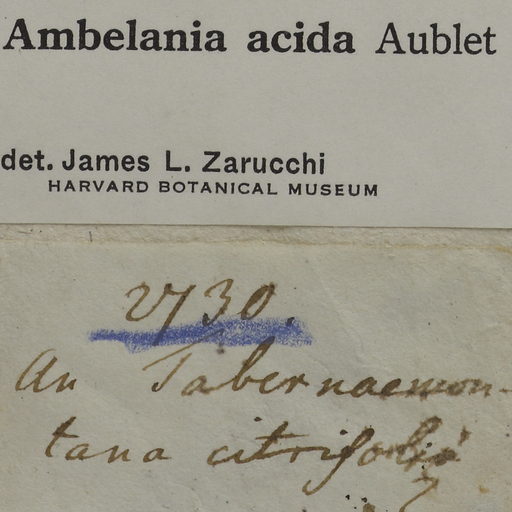 Ambelania acida Aublet
det. James L. Zarucchi
HARVARD BOTANICAL MUSEUM
2730.
An Tabernaemon-
tana citrifolia
?